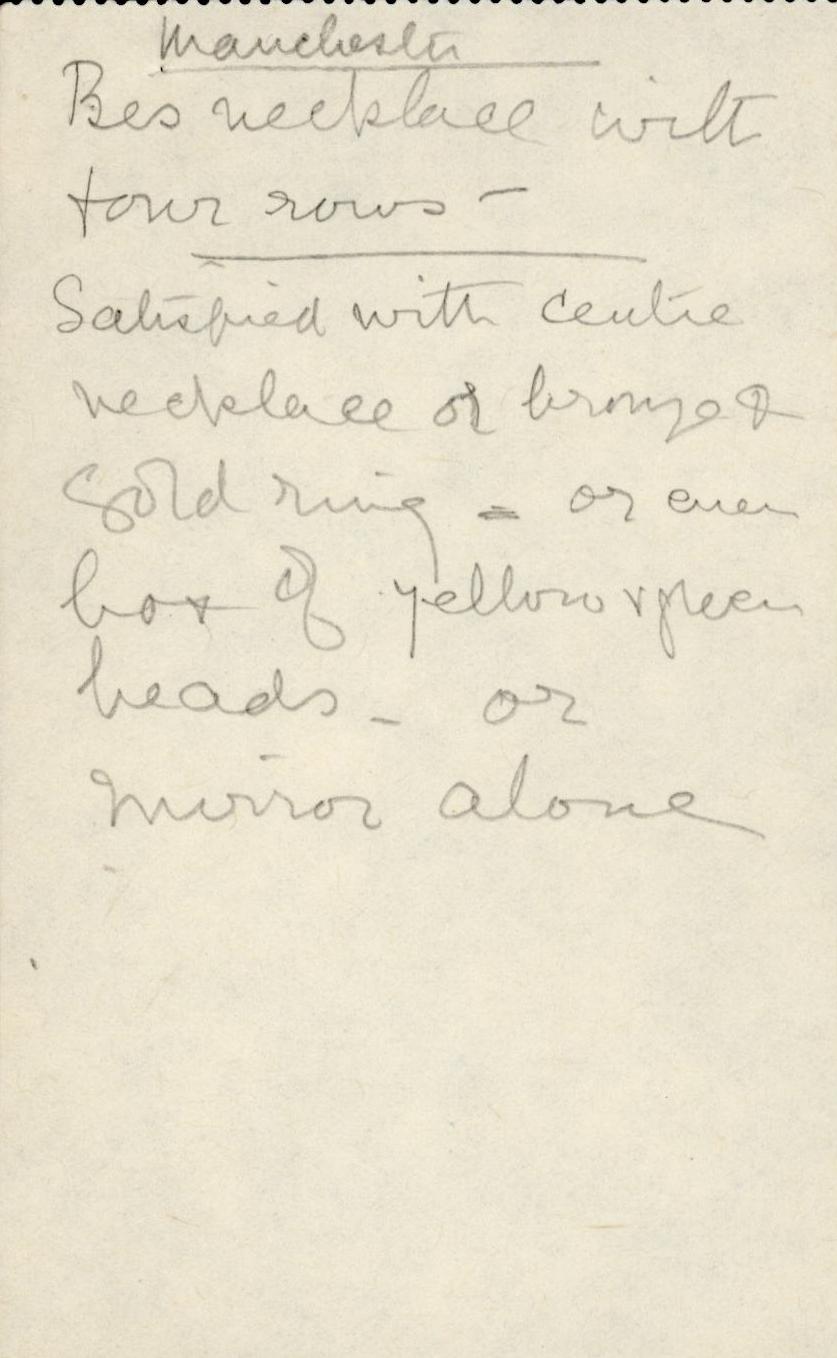 Manchester
Bes necklace with
four rows -
Satisfied with centre
necklace or bronze &
Gold ring = or even
box of yellow & green
beads - or
mirror alone